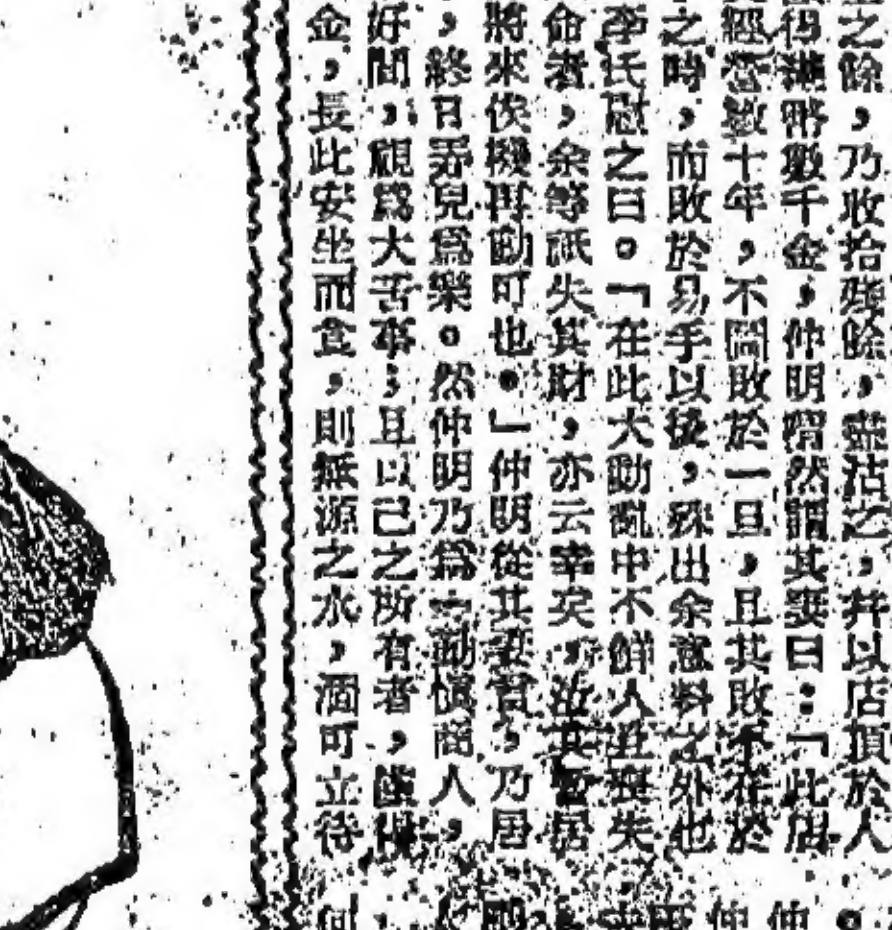 之餘，乃收拾殘餘，盡沽之，幷以店頂於人
得幣數千金，仲明喟然謂其妻曰：「此店
經營數十年，不圖敗於一旦，且其敗不在於
之時，而敗於易手以後，殊出余意料之外也
李氏慰之曰。「在此大動亂中不鮮人丑失
命者，余等祇失其財，亦云幸矣，汝其暫居
將來俟機再動可也。」仲明從其妻言，乃居
，終日弄兒爲樂。然仲明乃爲一勤慎商人，
好閒，視爲大苦事；且以己之所有者，僅
金，長此安坐而食，則無源之水，涸可立待